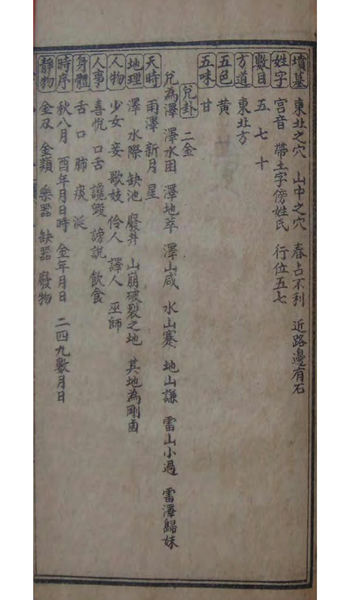 墳墓 東北之穴 山中之穴 春占不利 近路邊有石
姓字 宮音 帶土字傍姓氏 行位五七
數目 五 七 十
方道 東北方
五色 黃
五味 甘
兌卦 二金
兌為澤 澤水困 澤地萃 澤山咸 水山蹇 地山謙 雷山小過 雷澤歸妹
天時 雨澤 新月 星
地理 澤 水際 缺池 廢井 山崩破裂之地 其地為剛鹵
人物 少女 妾 歌妓 伶人 譯人 巫師
人事 喜悅 口舌 讒毀 謗說 飲食
身體 舌 口 肺 痰 涎
時序 秋八月 酉年月日時 金年月日 二四九數月日
靜物 金刃 金類 樂器 缺器 廢物